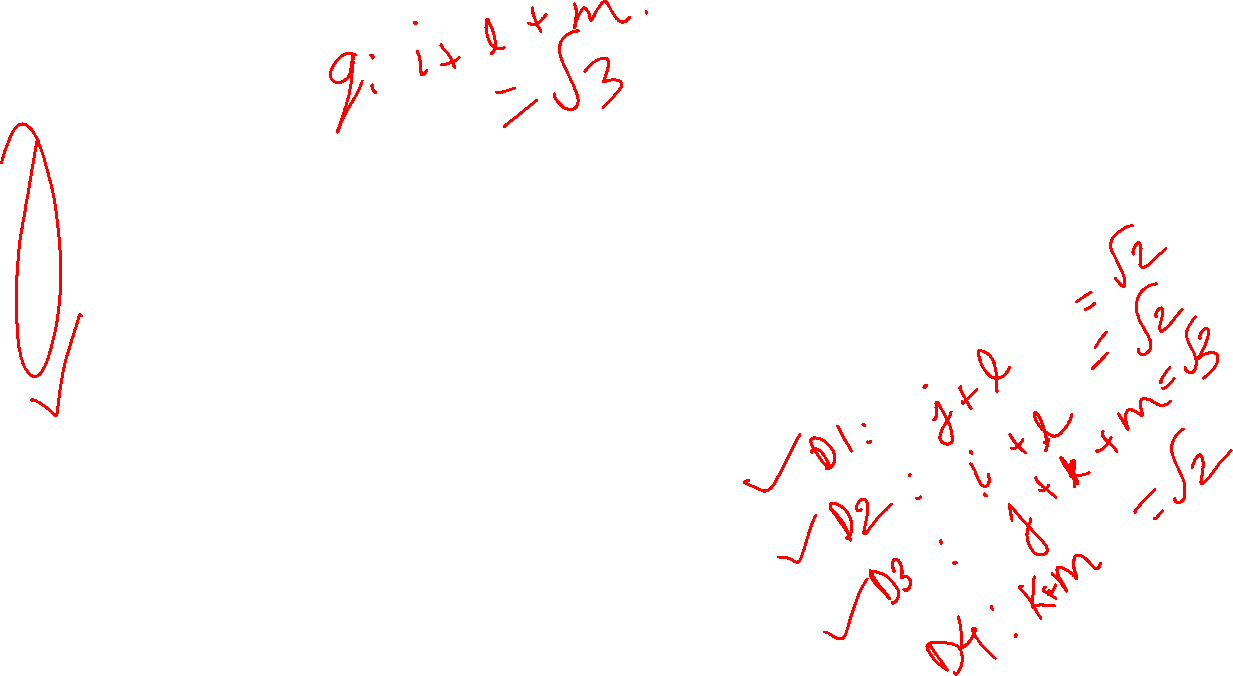 q: i + l + m.
= √3
D1: j + l = √2
D2: i + l = √2
D3: j + k + m = √3
D4: k + m = √2